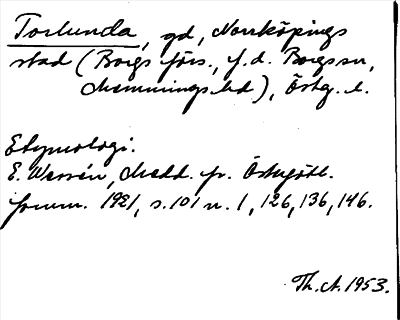 Torlunda, gd, Norrköpings
stad (Borgs förs., f.d. Borgs sn,
Memmings hd), Östg. l.
Etymologi.
E. Wessén, Medd. fr. Östergötl.
fornm. 1921, s. 101 n. 1, 126, 136, 146.
Th. A. 1953.